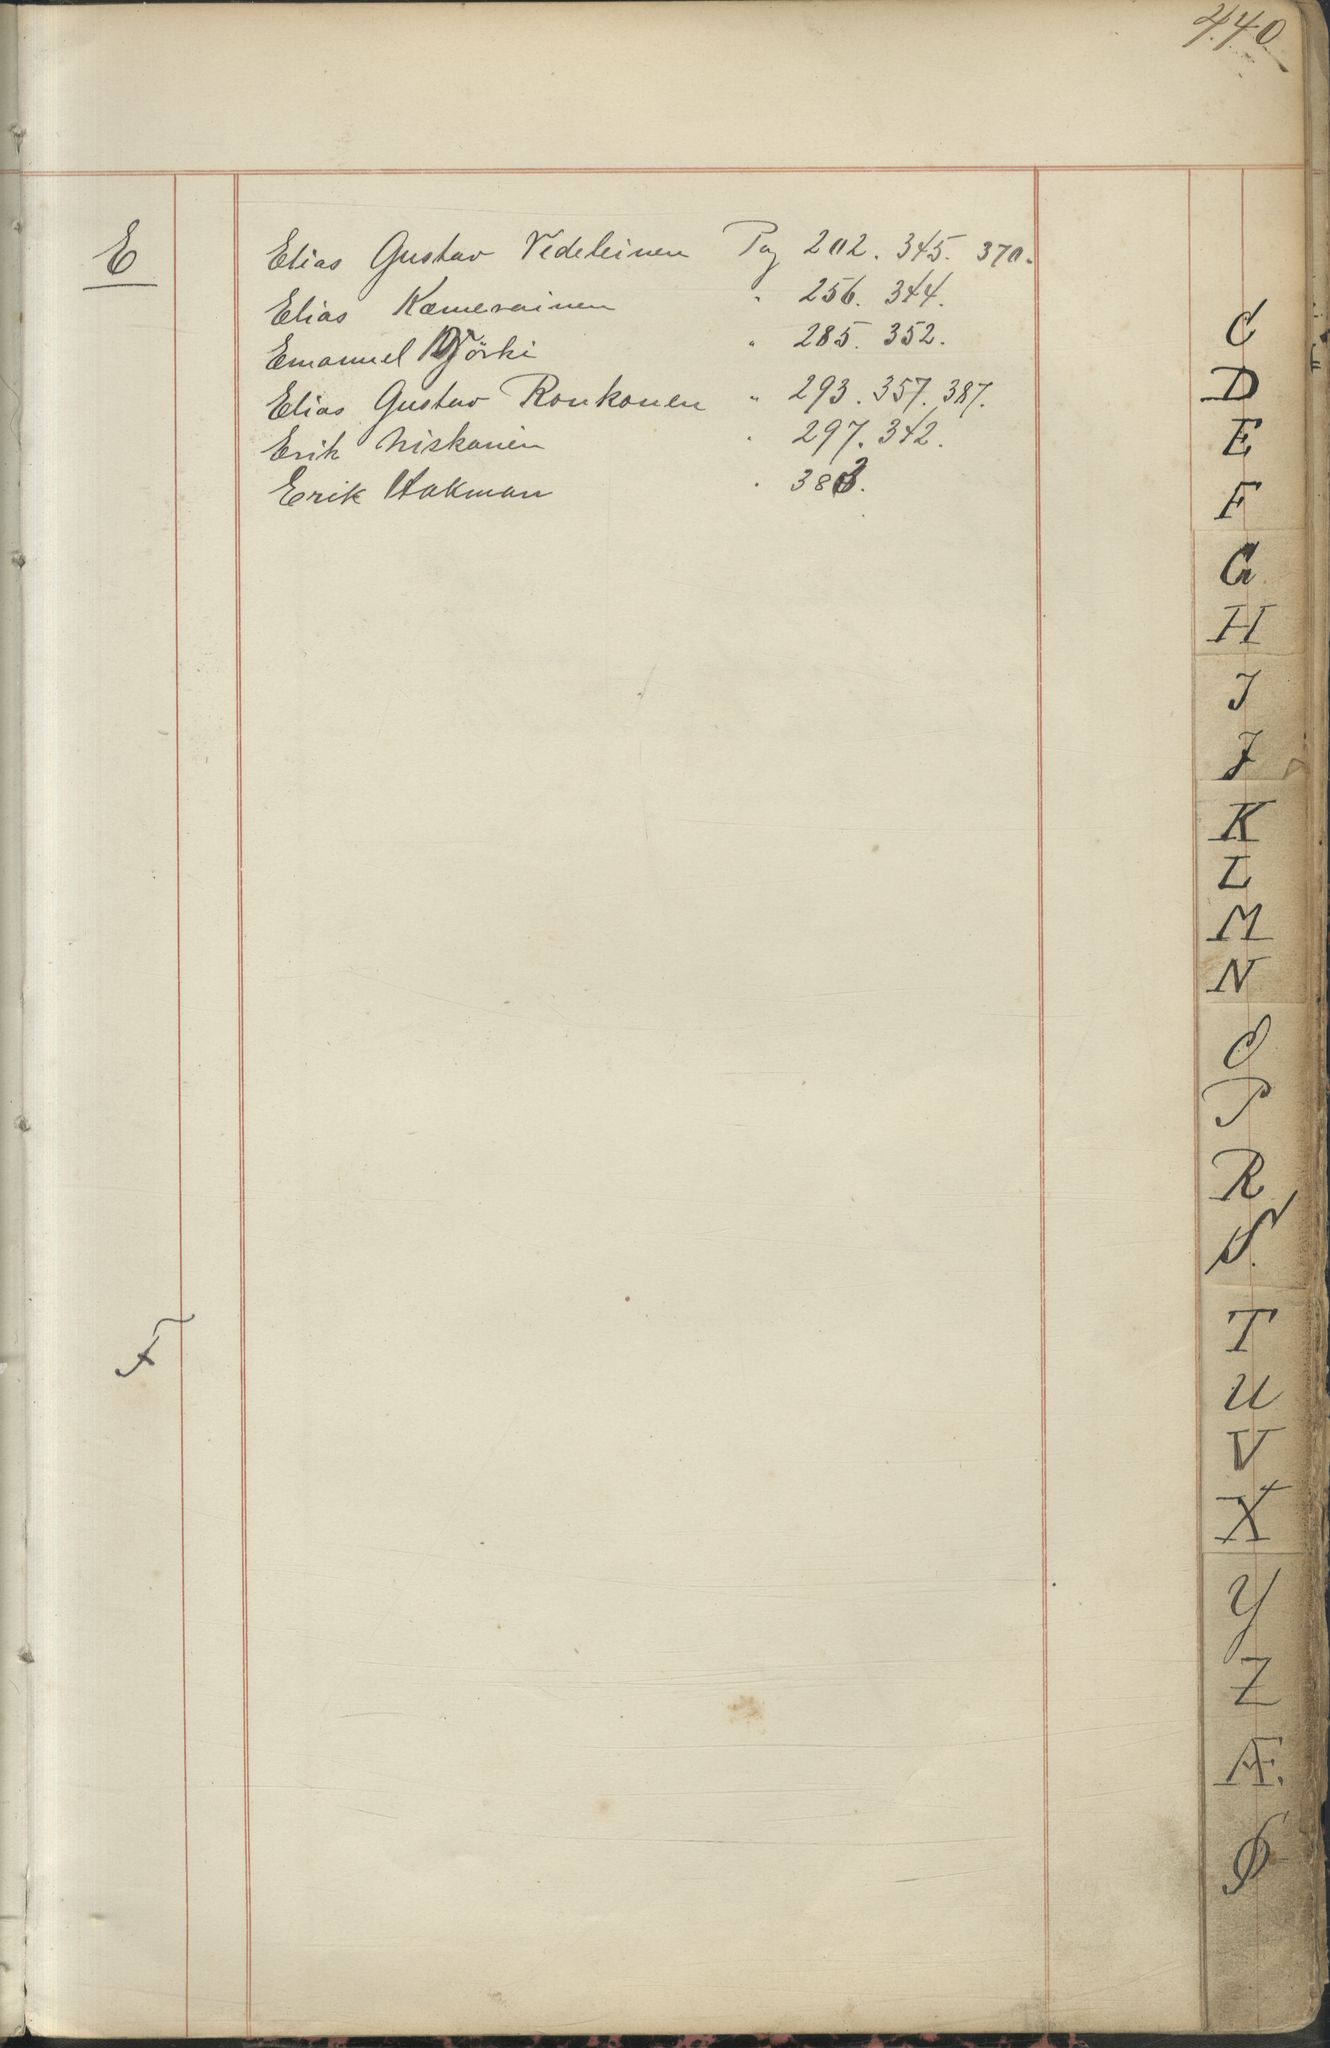 440
E
Elias Gustav Videleinen Pag 202. 345. 370.
Elias Kämeräinen " 256. 344.
Emanuel Björki " 285. 352.
Elias Gustav Ronkonen " 293. 357. 387.
Erik Niskanen " 297. 342.
Erik Hakman " 383.
F
C
D
E
F
G
H
I
J
K
L
M
N
O
P
R
S.
T
U
V
X
Y
Z
Æ.
Ø